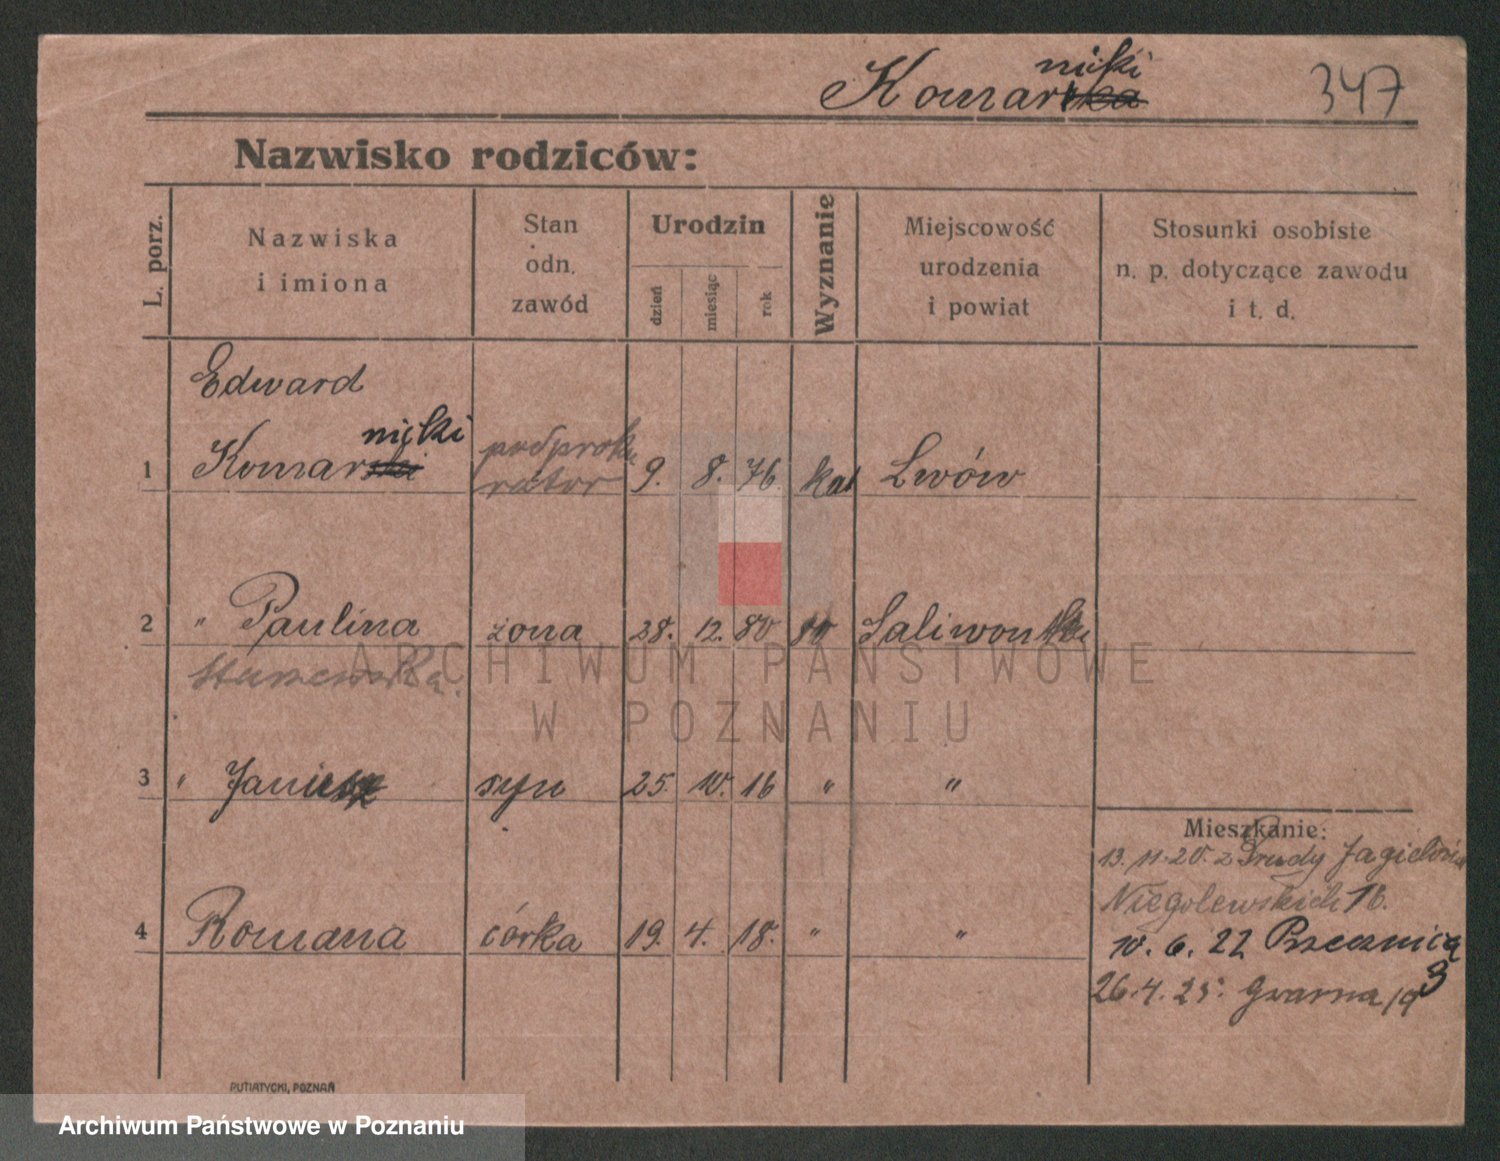 Komarnicki
347
Nazwisko rodziców:
L. porz.
Nazwiska
i imiona
Stan
odn.
zawód
Urodzin
dzień
miesiąc
rok
Wyznanie
Miejscowość
urodzenia
i powiat
Stosunki osobiste
n. p. dotyczące zawodu
i t. d.
Edward
1 Komarnicki podproku 9. 8. 76. kat Lwów
rator
2 " Paulina żona 28. 12. 80
3 " syn 25. 10. 16 " "
Mieszkanie:
13. 11. 20. z Jagielońs
Niegolewskich 16.
4 Romana córka 19. 4. 18. " "
10. 6. 22
26. 4. 25. Gwarna 19
PUTIATYCKI, POZNAŃ
ARCHIWUM PAŃSTWOWE
W POZNANIU
Archiwum Państwowe w Poznaniu